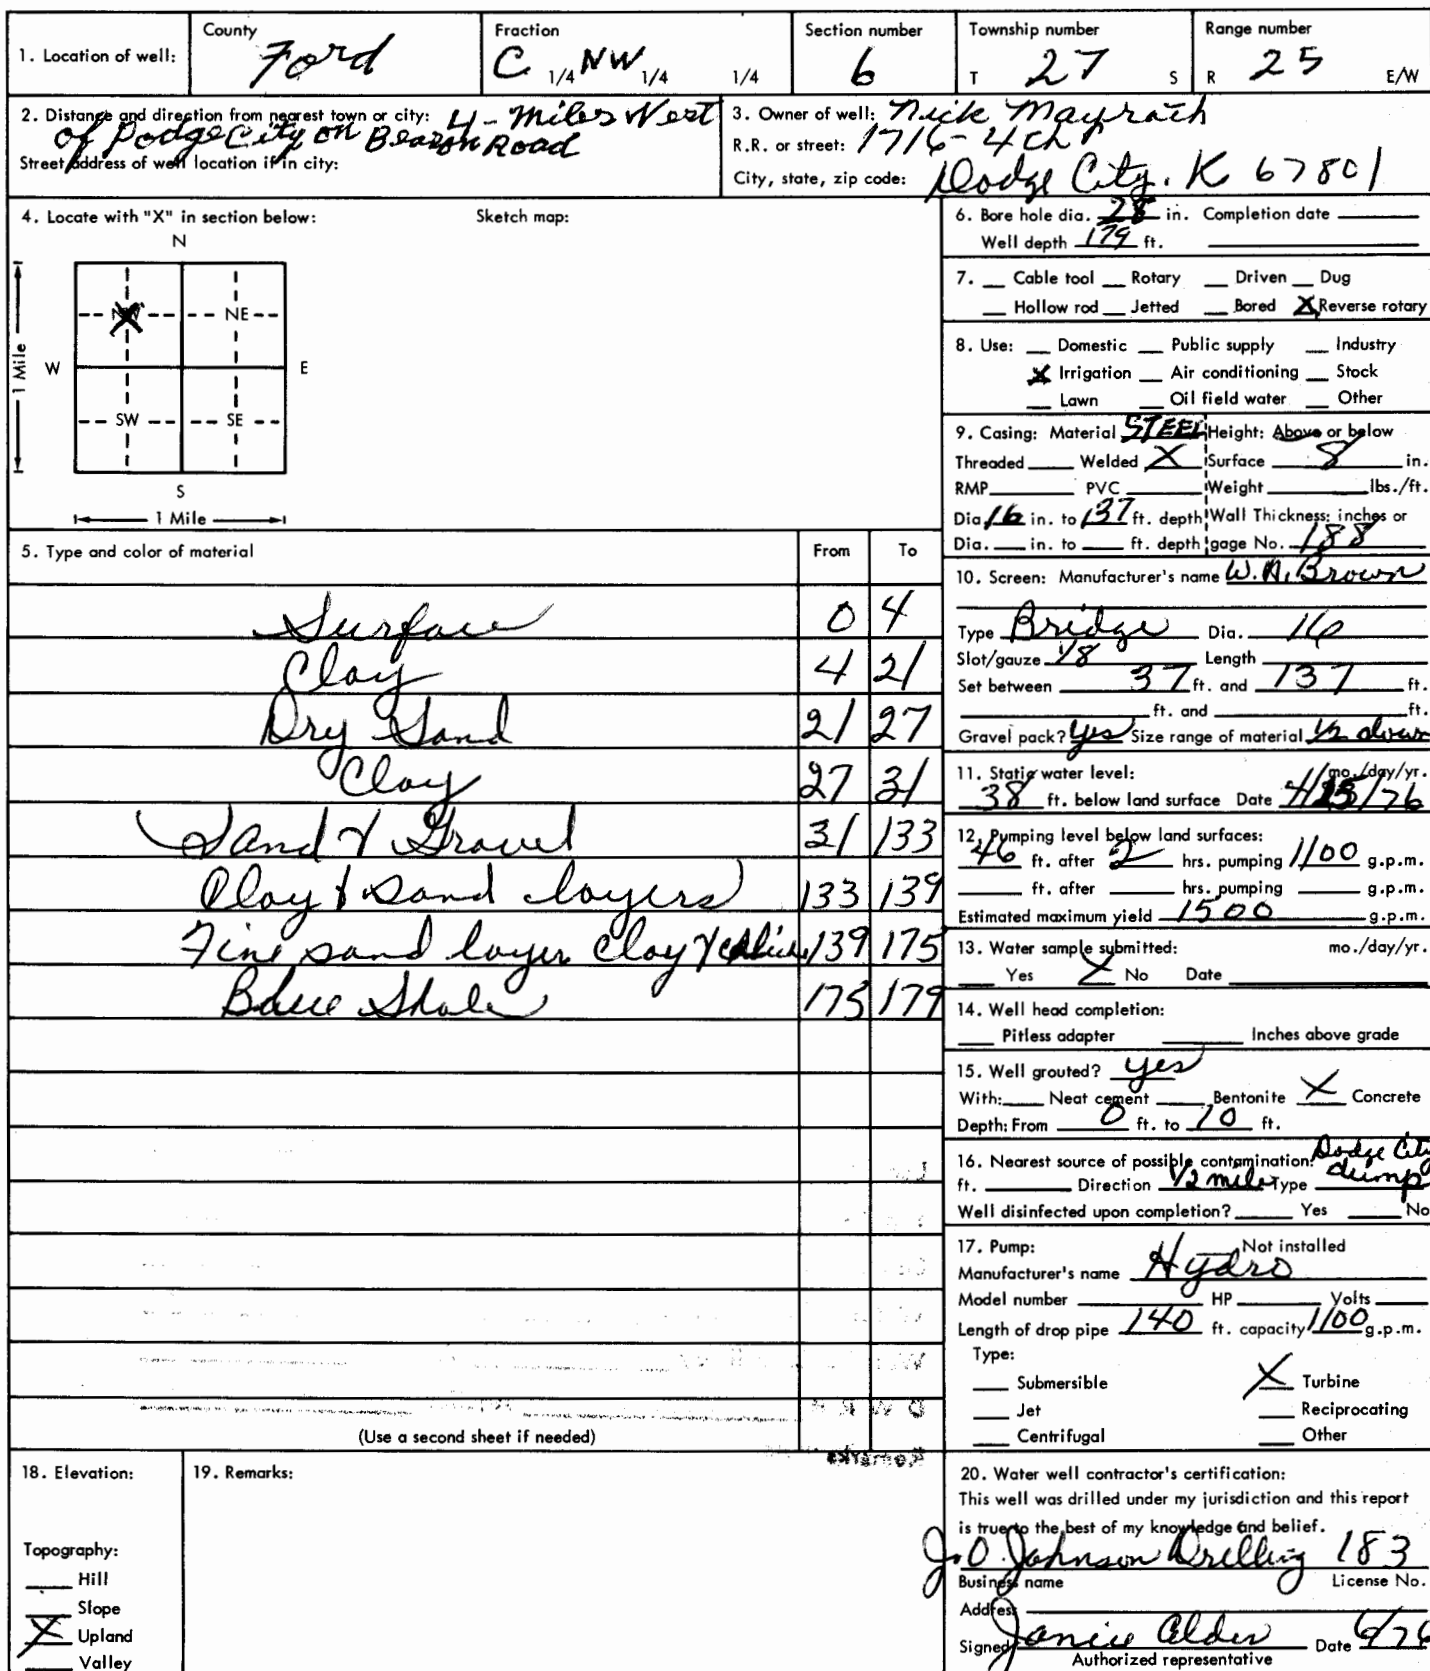 1. Location of well: County Ford Fraction C 1/4 NW 1/4 1/4 Section number 6 Township number T 27 S Range number R 25 E/W
2. Distance and direction from nearest town or city: 4 - Miles West
of Dodge City on Beason Road
Street address of well location if in city:
3. Owner of well: Nick Mayrath
R.R. or street: 1716 - 4th
City, state, zip code: Dodge City. K 67801
4. Locate with "X" in section below: Sketch map:
N
NW NE
W E
1 Mile
SW SE
S
1 Mile
6. Bore hole dia. 28 in. Completion date
Well depth 179 ft.
7. Cable tool Rotary Driven Dug
Hollow rod Jetted Bored X Reverse rotary
8. Use: Domestic Public supply Industry
X Irrigation Air conditioning Stock
Lawn Oil field water Other
9. Casing: Material STEEL Height: Above or below
Threaded Welded X Surface 8 in.
RMP PVC Weight lbs./ft.
Dia. 16 in. to 137 ft. depth Wall Thickness: inches or
Dia. in. to ft. depth gage No. 188
5. Type and color of material From To
Surface 0 4
Clay 4 21
Dry Sand 21 27
Clay 27 31
Sand & Gravel 31 133
Clay & sand layers 133 139
Fine sand layer Clay & 139 175
Blue Shale 175 179
(Use a second sheet if needed)
10. Screen: Manufacturer's name W.A. Brown
Type Bridge Dia. 16
Slot/gauze 1/8 Length
Set between 37 ft. and 137 ft.
ft. and ft.
Gravel pack? Yes Size range of material 1/2 down
11. Static water level: mo./day/yr.
38 ft. below land surface Date 4/25/76
12. Pumping level below land surfaces:
46 ft. after 2 hrs. pumping 1100 g.p.m.
ft. after hrs. pumping g.p.m.
Estimated maximum yield 1500 g.p.m.
13. Water sample submitted: mo./day/yr.
Yes X No Date
14. Well head completion:
Pitless adapter Inches above grade
15. Well grouted? yes
With: Neat cement Bentonite X Concrete
Depth: From 0 ft. to 10 ft.
16. Nearest source of possible contamination: Dodge City
ft. Direction 1/2 mile Type dump
Well disinfected upon completion? Yes No
17. Pump: Not installed
Manufacturer's name Hydro
Model number HP Volts
Length of drop pipe 140 ft. capacity 1100 g.p.m.
Type:
Submersible X Turbine
Jet Reciprocating
Centrifugal Other
18. Elevation:
Topography:
Hill
Slope
X Upland
Valley
19. Remarks:
20. Water well contractor's certification:
This well was drilled under my jurisdiction and this report
is true to the best of my knowledge and belief.
J.O. Johnson Drilling 183
Business name License No.
Address
Signed Janice Alder Date 6/76
Authorized representative